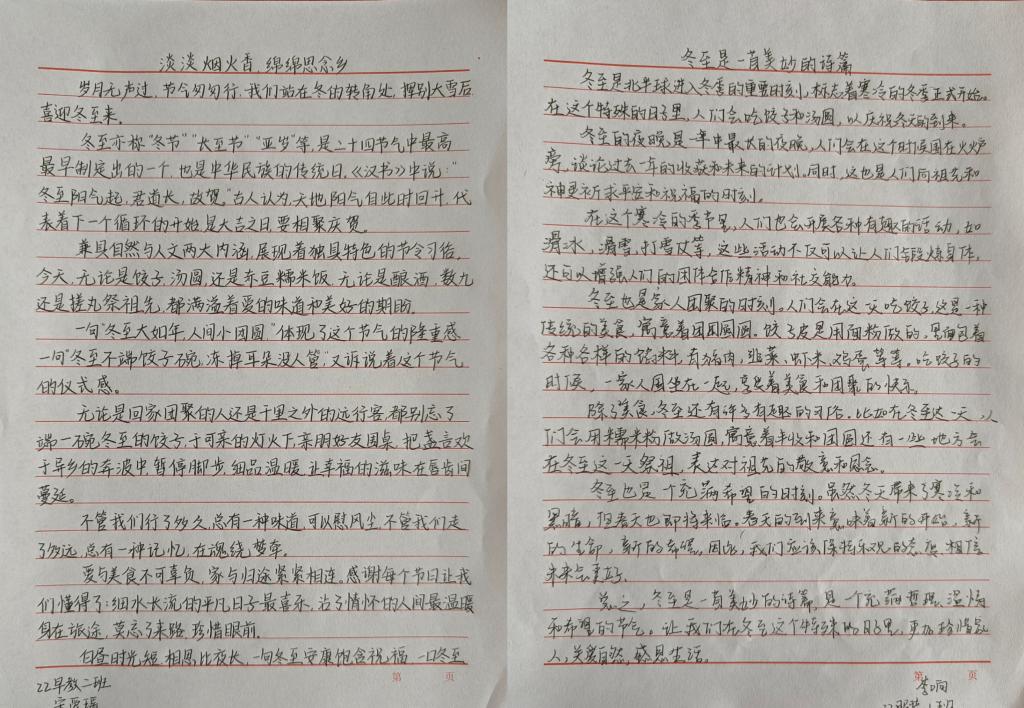 淡淡烟火香,绵绵思念乡
岁月无声过,节气匆匆行,我们站在冬的转角处,挥别大雪后
喜迎冬至来。
冬至亦称"冬节""长至节""亚岁"等,是二十四节气中最高
最早制定出的一个,也是中华民族的传统日,《汉书》中说:"
冬至阳气起,君道长,故贺。"古人认为,天地阳气自此时回升,代
表着下一个循环的开始是大吉之日,要相聚庆贺。
兼具自然与人文两大内涵,展现着独具特色的节令习俗,
今天,无论是饺子,汤圆,还是东豆糯米饭,无论是酿酒,数九
还是搓丸祭祖先,都满溢着爱的味道和美好的期盼,
一句"冬至大如年,人间小团圆"体现了这个节气的隆重感,
一句"冬至不端饺子碗,冻掉耳朵没人管",又诉说着这个节气
的仪式感。
无论是回家团聚的人还是千里之外的远行客,都别忘了
端一碗冬至的饺子,于可亲的灯火下,亲朋好友围桌,把盏言欢
于异乡的奔波中,暂停脚步,细品温暖,让幸福的滋味在唇齿间
蔓延。
不管我们行了多久,总有一种味道,可以慰风尘,不管我们走
了多远,总有一种记忆,在魂绕梦牵。
爱与美食不可辜负,家与归途紧紧相连。感谢每个节日让我
们懂得了:细水长流的平凡日子最喜乐,沾了情怀的人间最温暖
身在旅途,莫忘了来路,珍惜眼前。
白昼时光短,相思比夜长,一句冬至安康饱含祝福,一口冬至
第 页
22早教二班
冬至是一首美妙的诗篇
冬至是北半球进入冬季的重要时刻,标志着寒冷的冬季正式开始。
在这个特殊的日子里,人们会吃饺子和汤圆,以庆祝冬天的到来。
冬至的夜晚是一年中最长的夜晚,人们会在这个时候围在火炉
旁,谈论过去一年的收获和未来的计划。同时,这也是人们向祖先和
神灵祈求平安和祝福的时刻。
在这个寒冷的季节里,人们也会开展各种有趣的活动,如
滑冰,滑雪,打雪仗等,这些活动不仅可以让人们锻炼身体,
还可以增强人们的团体合作精神和社交能力。
冬至也是家人团聚的时刻。人们会在这一天吃饺子,这是一种
传统的美食,寓意着团团圆圆,饺子皮是用面粉做的,里面包着
各种各样的馅料,有猪肉,韭菜,虾米,鸡蛋等等。吃饺子的
时候,一家人围坐在一起,享受着美食和团聚的快乐。
除了美食,冬至还有许多有趣的习俗。比如在冬至这一天,人
们会用糯米粉做汤圆,寓意着丰收和团圆还有一些地方会
在冬至这一天祭祖,表达对祖先的敬意和思念。
冬至也是一个充满希望的时刻。虽然冬天带来了寒冷和
黑暗,但春天也即将来临。春天的到来意味着新的开始,新
的生命,新的希望。因此,我们应该保持乐观的态度,相信
未来会更好。
总之,冬至是一首美妙的诗篇,是一个充满哲理,温情
和希望的节气。让我们在冬至这个特殊的日子里,更加珍惜家
人,关爱自然,感恩生活。
第 页